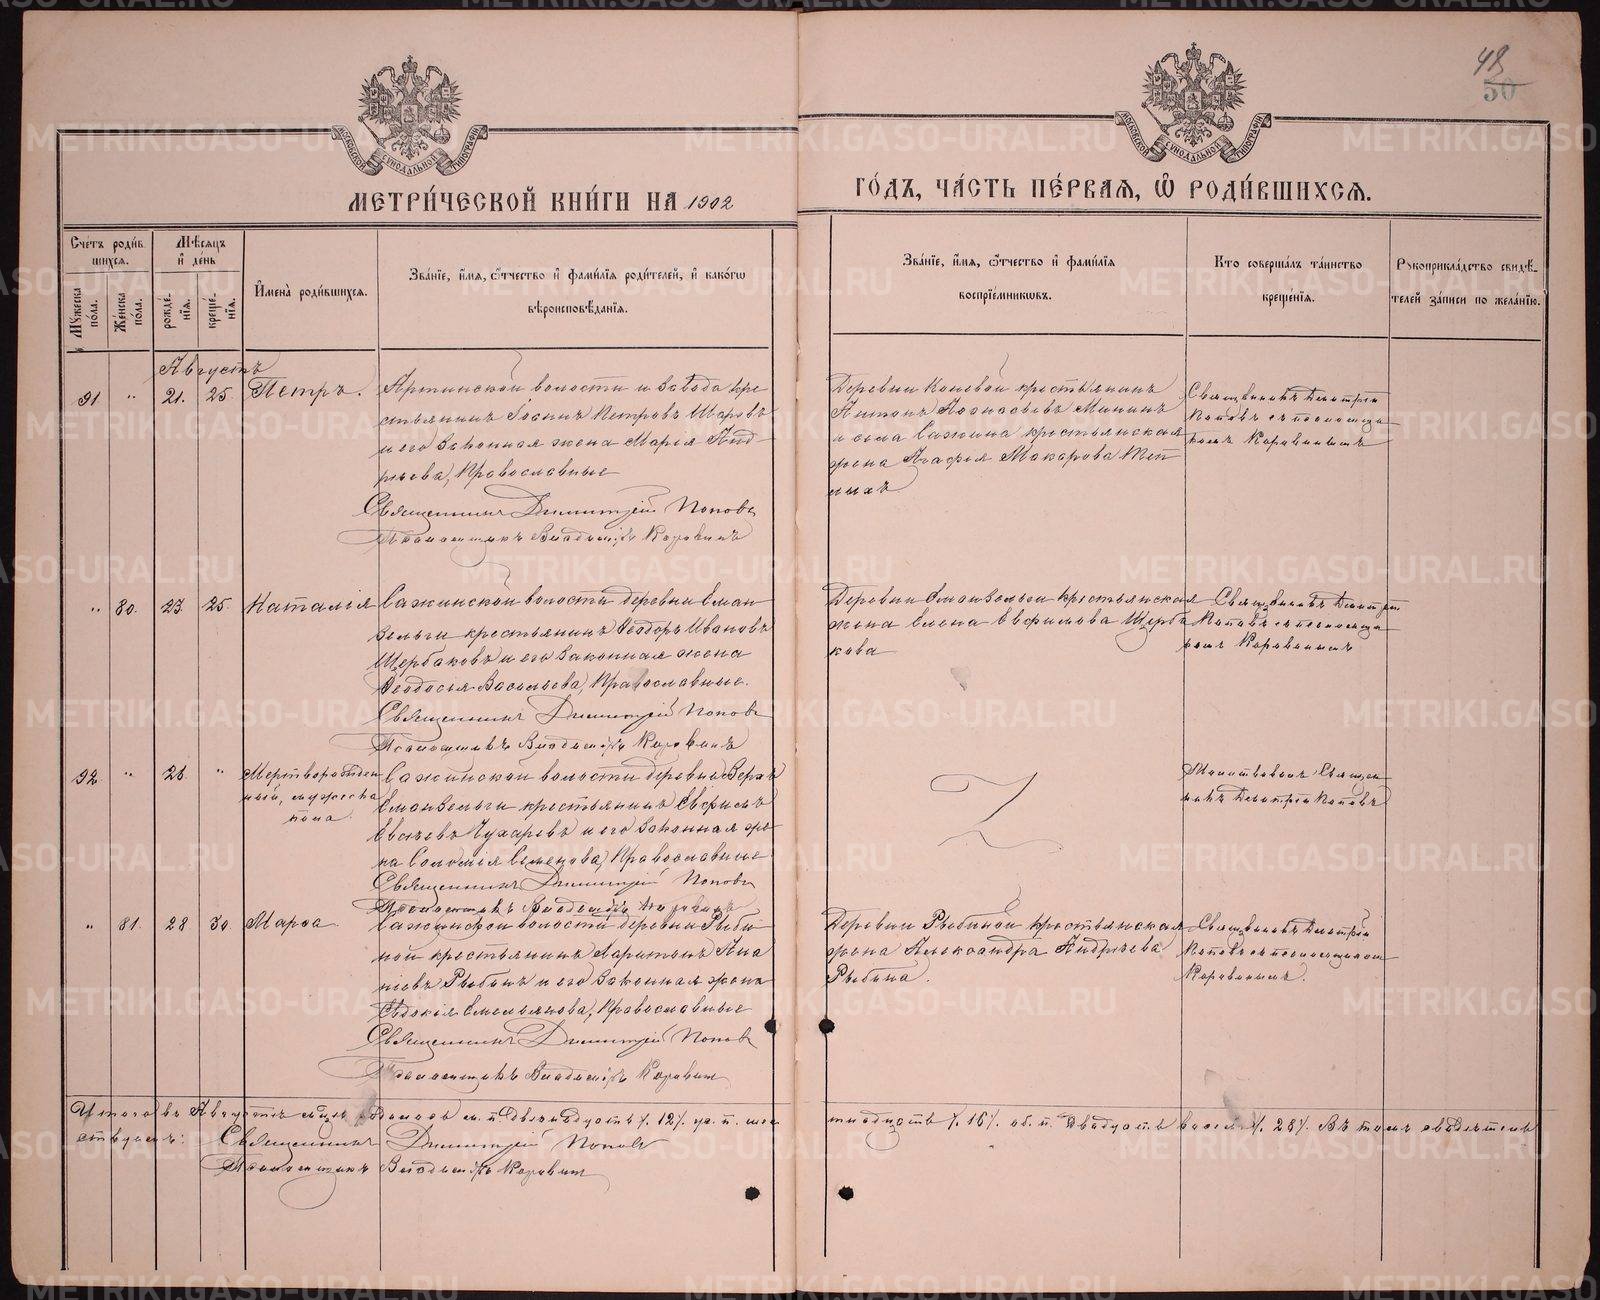 48
50
МОСКОВСКОЙ СѴНОДАЛЬНОЙ ТИПОГРАФІИ
МОСКОВСКОЙ СѴНОДАЛЬНОЙ ТИПОГРАФІИ
МЕТРИ́ЧЕСКОЙ КНИ́ГИ НА 1902
ГО́ДЪ, ЧА́СТЬ ПЕ́РВАЯ, Ѡ РОДИ́ВШИХСЯ.
Сче́тъ роди́в
шихся.
Мѣ́сяцъ
и҆ де́нь
Мꙋ́жеска по́ла.
Же́нска по́ла.
рожде́нїя.
креще́нїя.
И҆мена̀ роди́вшихся.
Зва́нїе, и҆́мя, ѻ҆́тчество и҆ фами́лїя роди́телей, и҆ како́гѡ
вѣроисповѣ́данїя.
Зва́нїе, и҆́мя, ѻ҆́тчество и҆ фами́лїя
воспрїе́мникѡвъ.
Кто̀ соверша́лъ та́инство
креще́нїя.
Рꙋкоприкла́дство свидѣ́-
телей за́писи по жела́нїю.
Августъ
91 " 21. 25. Петръ.
Артинской волости и завода кре
стьянинъ Іоаннъ Петровъ Шаровъ
и его законная жена Марія Анд
рѣева, Православные
Священникъ Димитрій Поповъ
Псаломщикъ Владиміръ Коровинъ
Деревни Коневой крестьянинъ
Антонъ Аѳонасьевъ Мининъ
и села Сажина крестьянская
жена Агафія Макарова Теп
лыхъ
Священникъ Дмитрій
Поповъ съ псаломщи
комъ Коровинымъ
" 80. 23. 25. Наталія
Сажинской волости деревни Еман
зельги крестьянинъ Ѳеодоръ Ивановъ
Щербаковъ и его законная жена
Ѳеодосія Васильева, Православные.
Священникъ Димитрій Поповъ
Псаломщикъ Владиміръ Коровинъ
Деревни Еманзельги крестьянская
жена Елена Евфимова Щерба
кова
Священникъ Дмитрій
Поповъ съ псаломщи
комъ Коровинымъ
92. " 26. " Мертворожден
ный, мужска
пола.
Сажинской волости деревни Верхъ
Еманзельги крестьянинъ Евфимъ
Чухаревъ и его законная же
на Соломія Семенова, Православные
Священникъ Димитрій Поповъ
Псаломщикъ Владиміръ Коровинъ
Священ
никъ Дмитрій Поповъ
" 81. 28 30. Марѳа.
Сажинской волости деревни Рыби
ной крестьянинъ Харитонъ Ана
ніевъ Рыбинъ и его законная жена
Евдокія Емельянова, Православные
Священникъ Димитрій Поповъ
Псаломщикъ Владиміръ Коровинъ
Деревни Рыбиной крестьянская
жена Александра Андрѣева
Рыбина.
Священникъ Дмитрій
Поповъ съ псаломщикомъ
Коровинымъ.
Итого въ Августѣ мцѣ родилось м. п. двѣнадцать /. 12 /. ж. п. шес
тнадцать /. 16 /. об. п. двадцать восемь /. 28 /. Въ томъ свидѣтель
ствуемъ: Священникъ Димитрій Поповъ
Псаломщикъ Владиміръ Коровинъ
METRIKI.GASO-URAL.RU